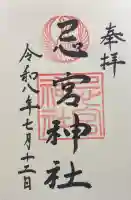 奉拝
忌宮神社
令和八年七月十三日